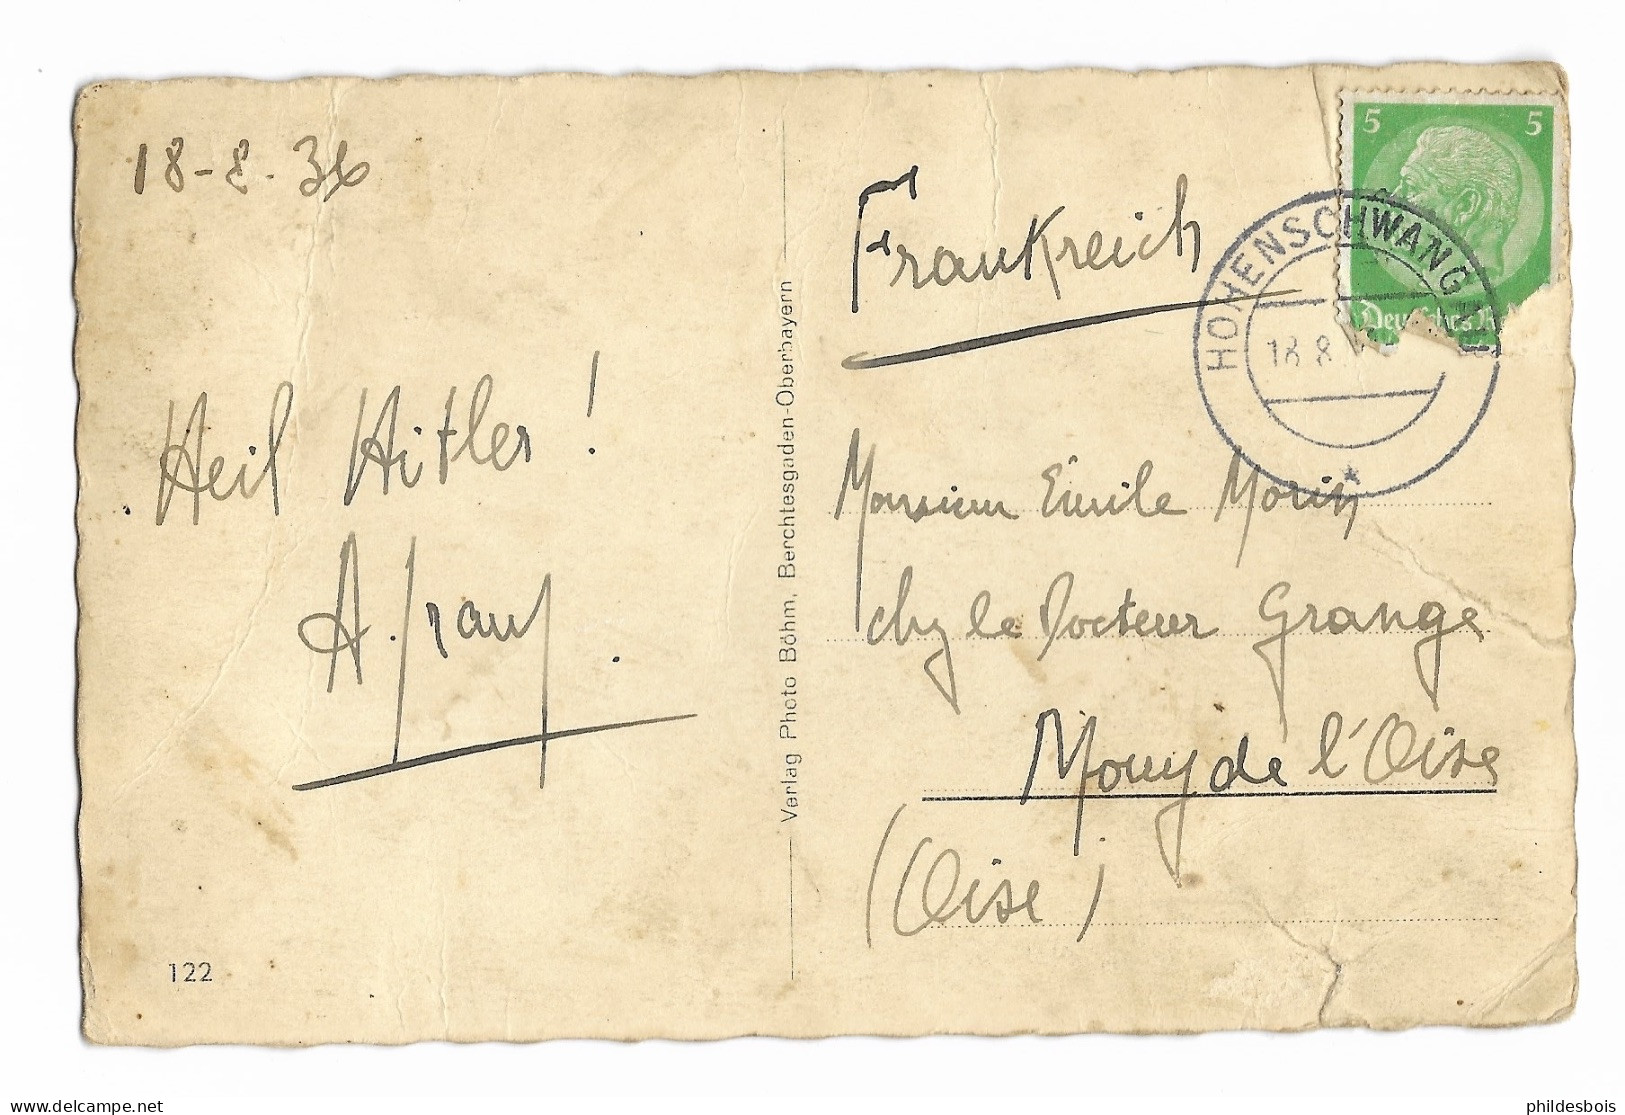 18-8-36
Heil Hitler !
A.
122
Verlag Photo Böhm, Berchtesgaden-Oberbayern
5 5
Deutsches R
HOHENSCHWANGAU
18.8.
Frankreich
Monsieur Emile Morin
chez le Docteur Grange
Mouy de l'Oise
(Oise)
phildesbois